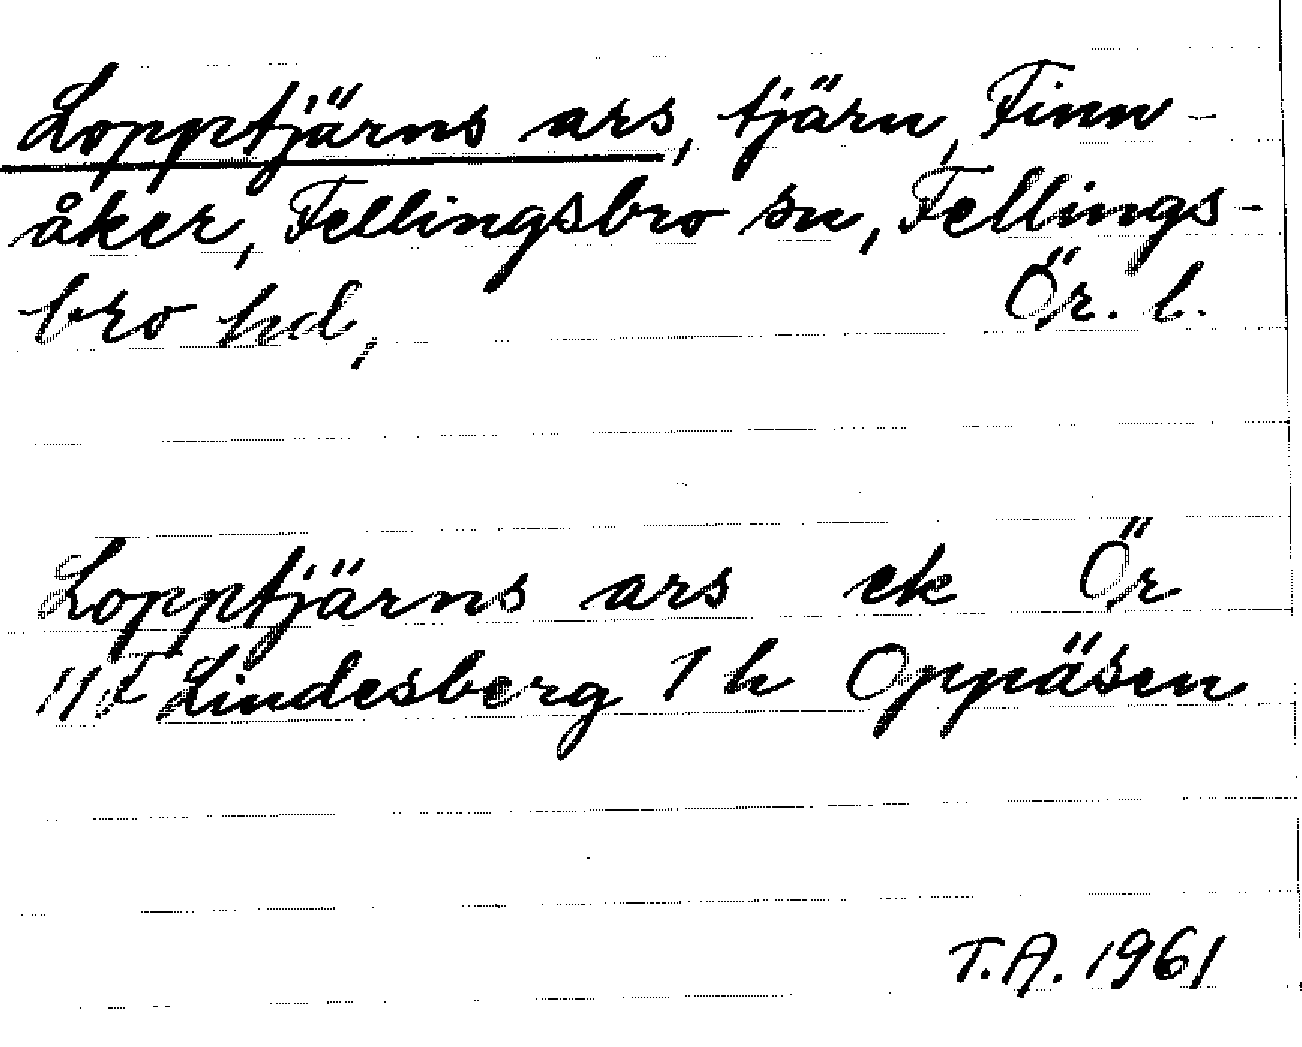 Lopptjärns ars, tjärn, Finn-
åker, Fellingsbro sn, Fellings-
bro hd, Ör. l.
Lopptjärns ars ek Ör
11F Lindesberg 1 h Oppåsen
T.A. 1961